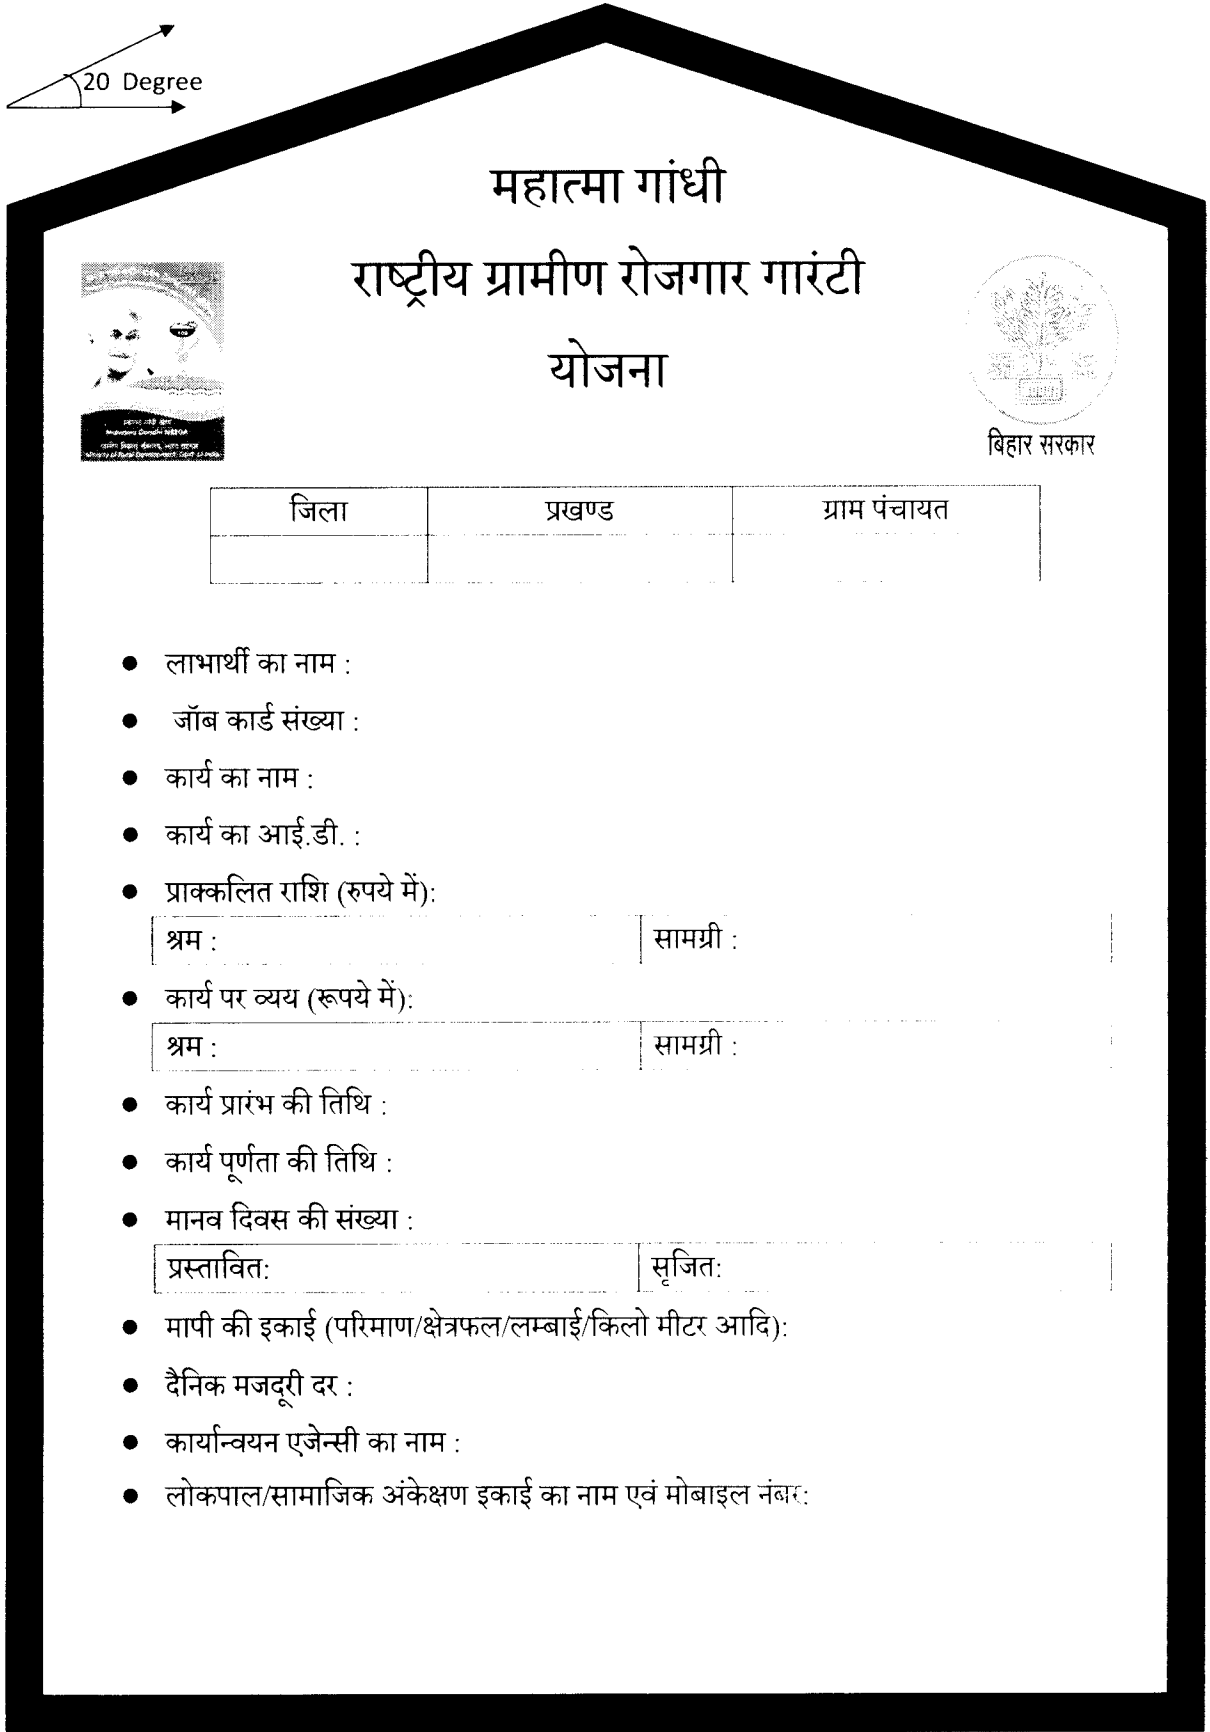 20 Degree
महात्मा गांधी
राष्ट्रीय ग्रामीण रोजगार गारंटी
योजना
बिहार सरकार
जिला प्रखण्ड ग्राम पंचायत
• लाभार्थी का नाम :
• जॉब कार्ड संख्या :
• कार्य का नाम :
• कार्य का आई.डी. :
• प्राक्कलित राशि (रुपये में):
श्रम : सामग्री :
• कार्य पर व्यय (रूपये में):
श्रम : सामग्री :
• कार्य प्रारंभ की तिथि :
• कार्य पूर्णता की तिथि :
• मानव दिवस की संख्या :
प्रस्तावित: सृजित:
• मापी की इकाई (परिमाण/क्षेत्रफल/लम्बाई/किलो मीटर आदि):
• दैनिक मजदूरी दर :
• कार्यान्वयन एजेन्सी का नाम :
• लोकपाल/सामाजिक अंकेक्षण इकाई का नाम एवं मोबाइल नंबर: